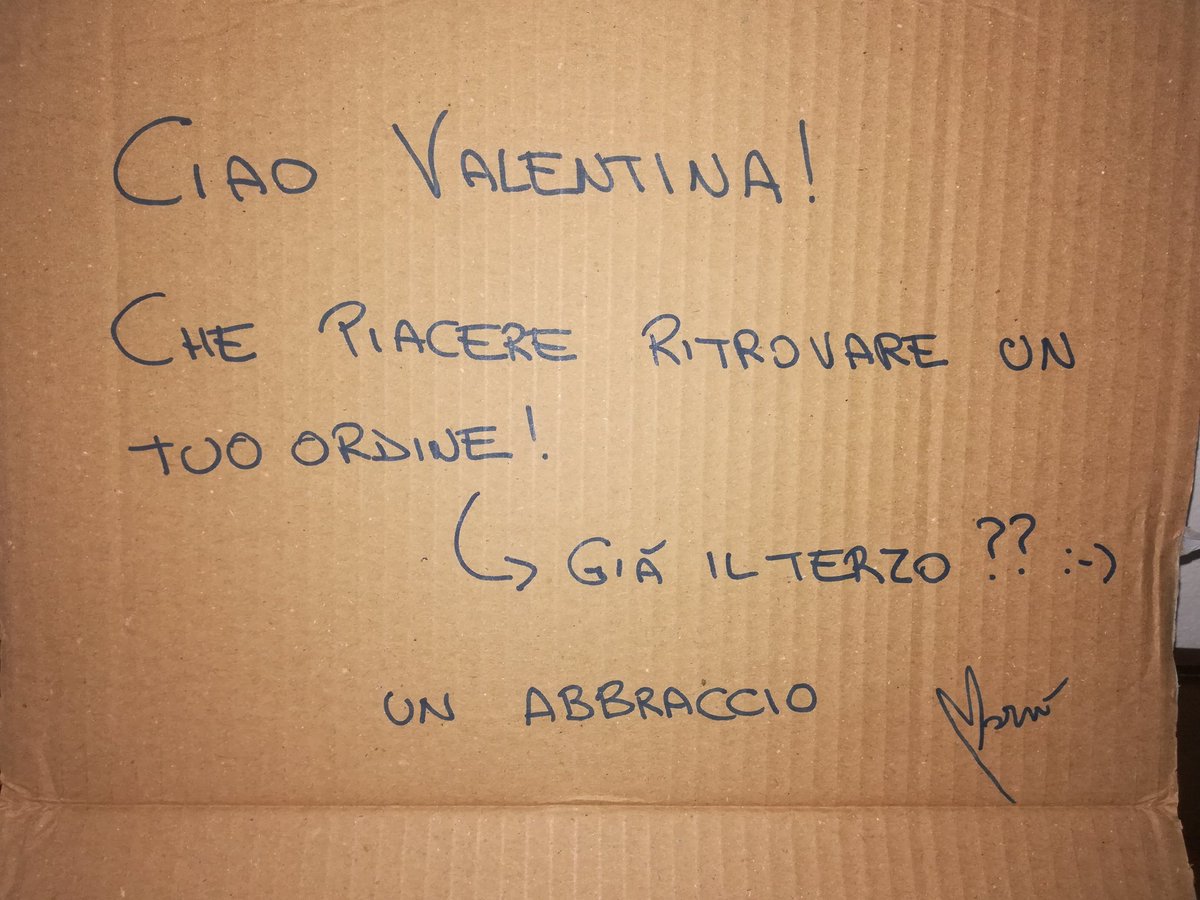 CIAO VALENTINA!
CHE PIACERE RITROVARE UN
TUO ORDINE!
GIÁ IL TERZO?? :-)
UN ABBRACCIO